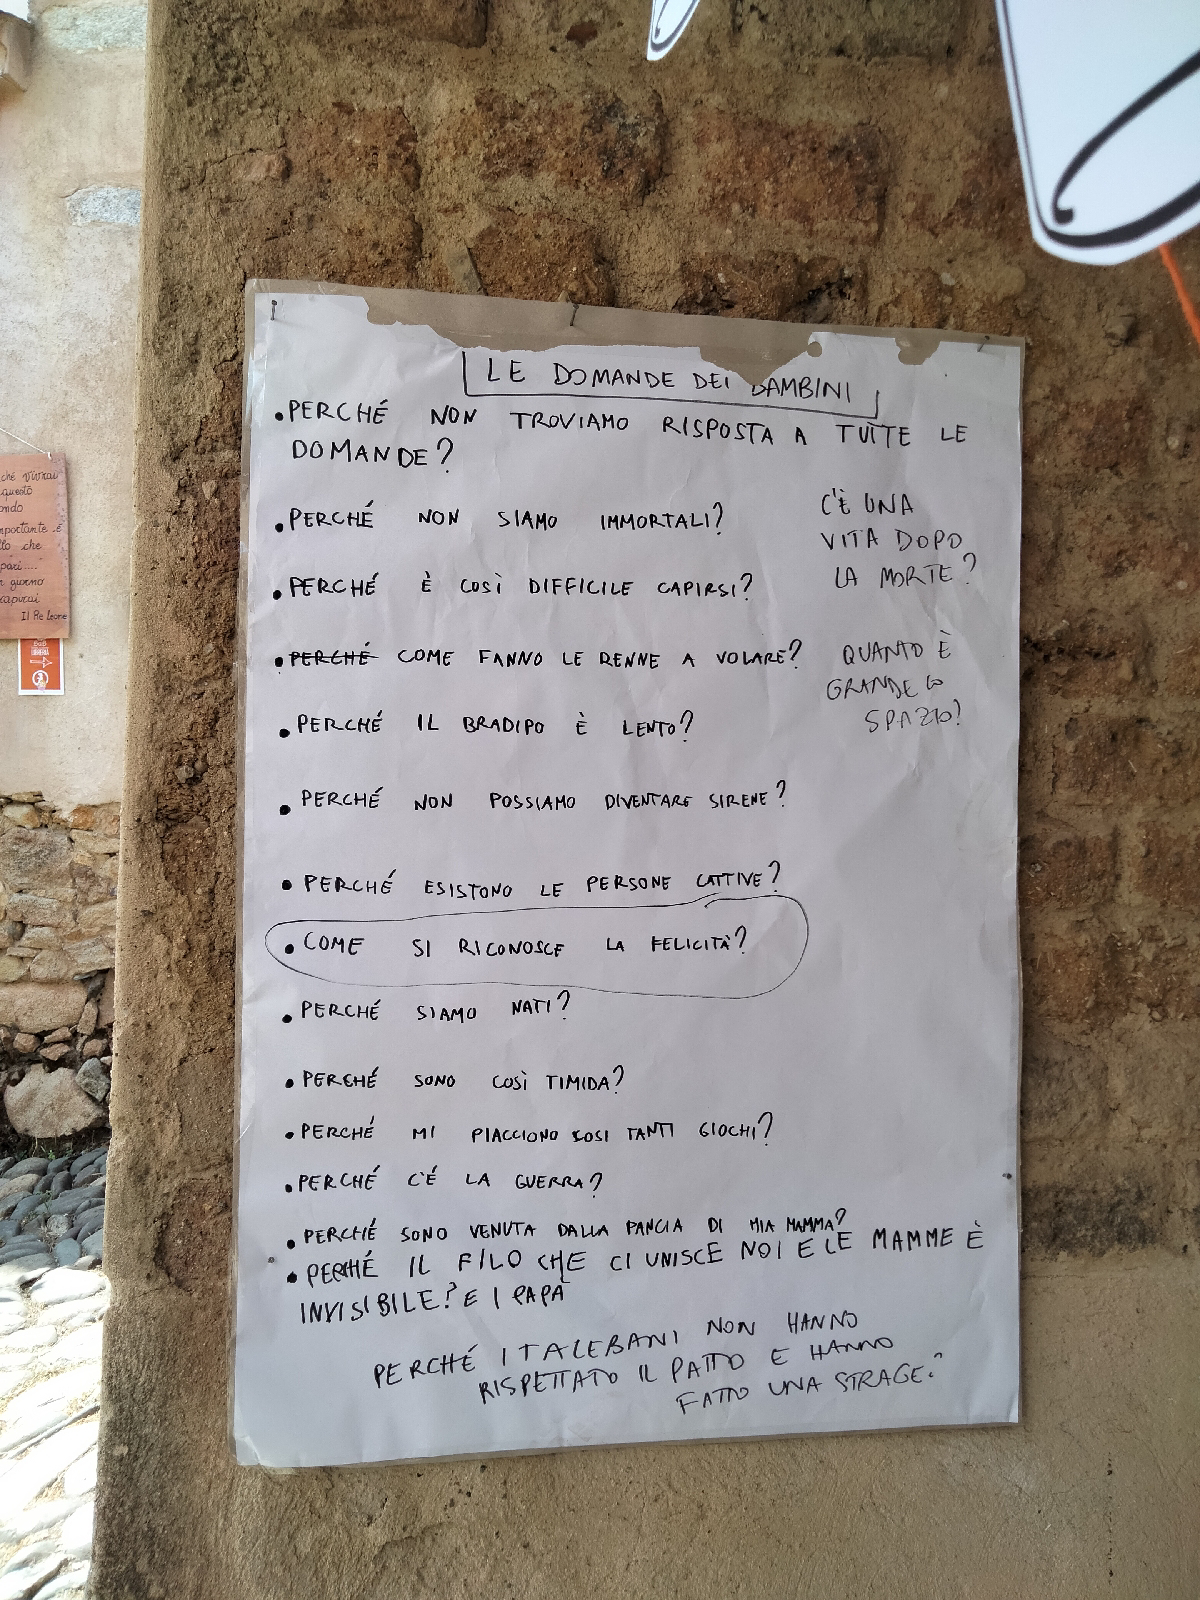 LE DOMANDE DEI BAMBINI
• PERCHÉ NON TROVIAMO RISPOSTA A TUTTE LE
DOMANDE?
• PERCHÉ NON SIAMO IMMORTALI?
C'È UNA
VITA DOPO
LA MORTE?
• PERCHÉ È COSÌ DIFFICILE CAPIRSI?
• PERCHÉ COME FANNO LE RENNE A VOLARE?
QUANTO È
GRANDE LO
SPAZIO?
• PERCHÉ IL BRADIPO È LENTO?
• PERCHÉ NON POSSIAMO DIVENTARE SIRENE?
• PERCHÉ ESISTONO LE PERSONE CATTIVE?
• COME SI RICONOSCE LA FELICITÀ?
• PERCHÉ SIAMO NATI?
• PERCHÉ SONO COSÌ TIMIDA?
• PERCHÉ MI PIACCIONO COSI TANTI GIOCHI?
• PERCHÉ C'É LA GUERRA?
• PERCHÉ SONO VENUTA DALLA PANCIA DI MIA MAMMA?
• PERCHÉ IL FILO CHE CI UNISCE NOI E LE MAMME È
INVISIBILE? E I PAPÀ
PERCHÉ I TALEBANI NON HANNO
RISPETTATO IL PATTO E HANNO
FATTO UNA STRAGE?
ché vivrai
questo
ondo
mportante è
llo che
pari....
n giorno
capirai
Il Re Leone